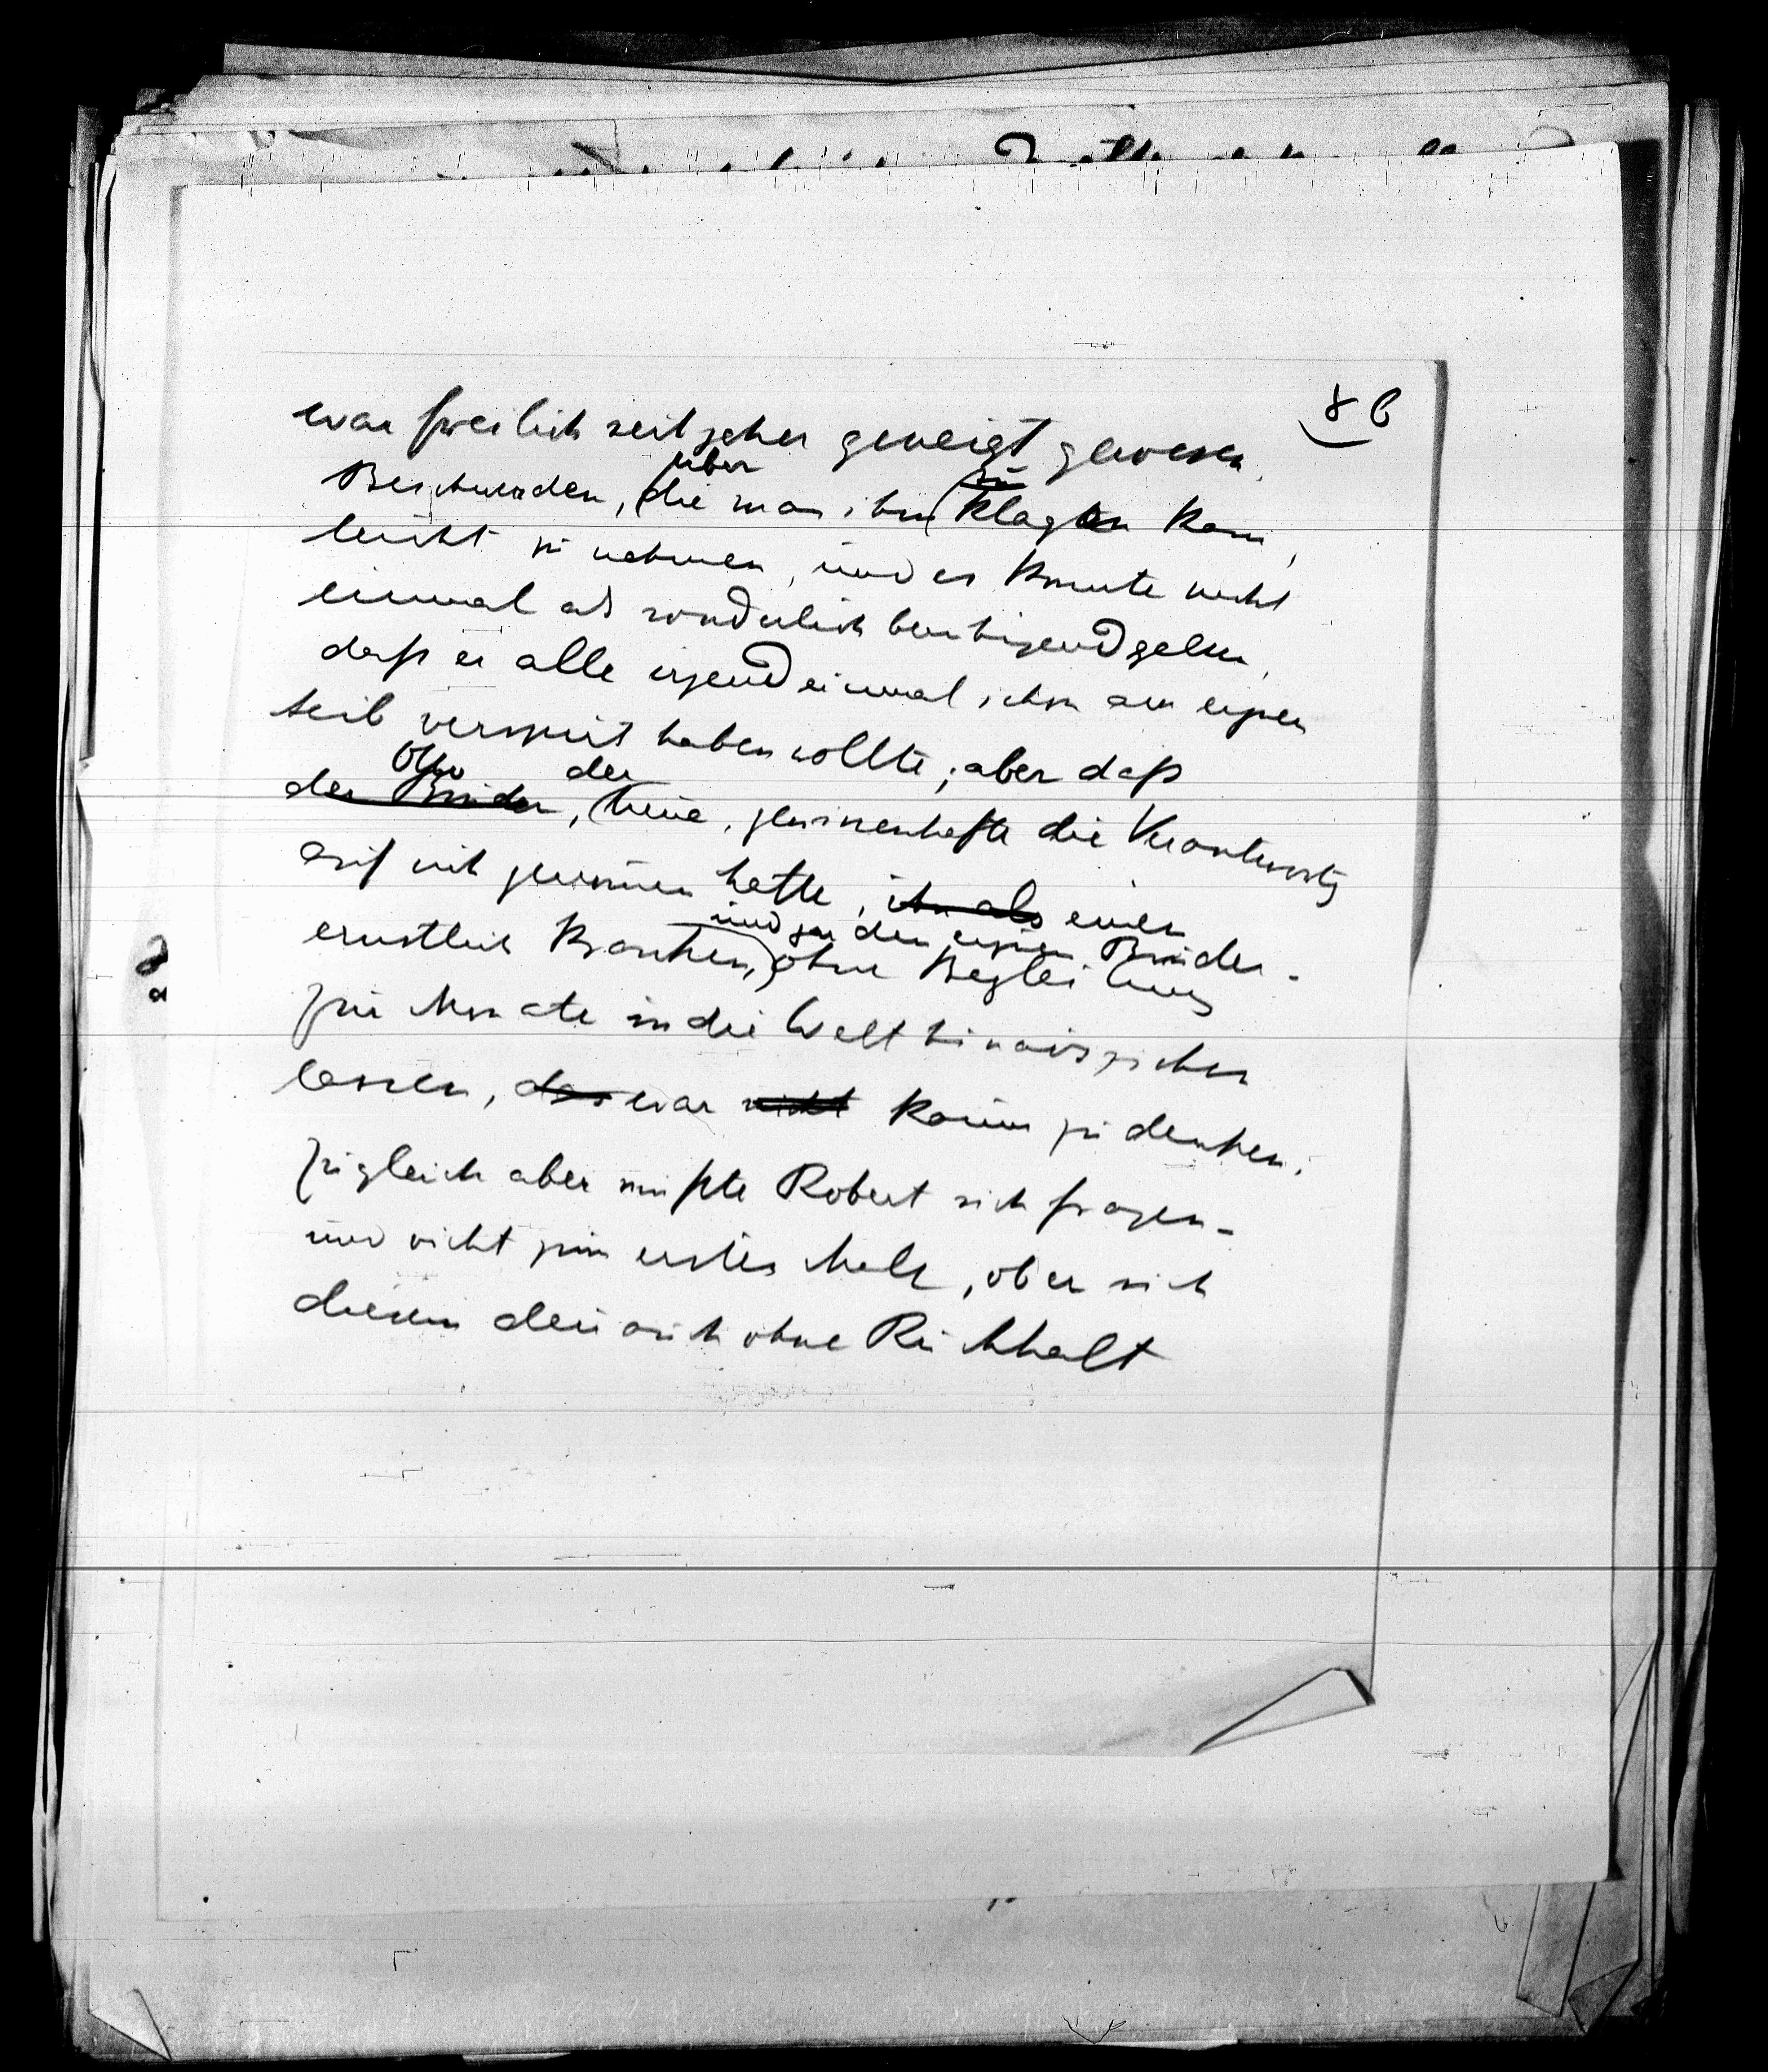 8 b
war freilich seit jeher geneigt gewesen,
über zu
Beschwerden, (die man ihm (klagen kam,
leicht zu nehmen, und es konnte nicht
einmal als sonderlich beruhigend gelten,
daß er alle irgend einmal schon am eignen
Leib verspürt haben wollte; aber daß
Otto der
der Bruder, (treue, gewissenhafte die Verantwortg
auf sich genommen hätte, ihn als einen
und gar den eignen Bruder -
ernstlich Kranken, ohne Begleitung
für Monate in die Welt hinausziehen
lassen, das war nicht kaum zu denken.
Zugleich aber mußte Robert sich fragen -
und nicht zum ersten Male, ob er sich
diesem denn auch ohne Rückhalt